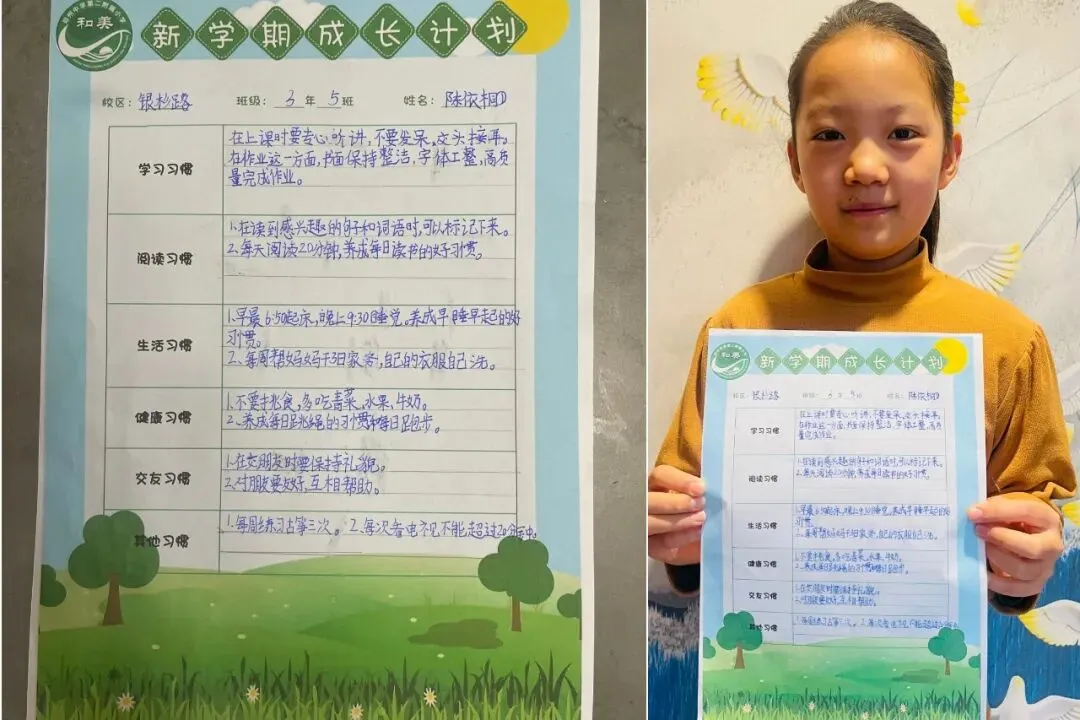 和美
新学期成长计划
校区：银杉路 班级：3年5班 姓名：陈依桐
学习习惯
在上课时要专心听讲，不要发呆，交头接耳。
在作业这一方面，书面保持整洁，字体工整，高质
量完成作业。
阅读习惯
1.在读到感兴趣的句子和词语时，可以标记下来。
2.每天阅读20分钟，养成每日读书的好习惯。
生活习惯
1.早晨6:50起床，晚上9:30睡觉。养成早睡早起的好
习惯。
2.每周帮妈妈干3日家务，自己的衣服自己洗。
健康习惯
1.不要挑食，多吃青菜，水果，牛奶。
2.养成每日跳绳的习惯和每日跑步。
交友习惯
1.在交朋友时要保持礼貌。
2.对朋友要好，互相帮助。
其他习惯
1.每周练习古筝三次。2.每次看电视不能超过20分钟。
和美
新学期成长计划
校区：银杉路 班级：3年5班 姓名：陈依桐
学习习惯
在上课时要专心听讲，不要发呆，交头接耳。
在作业这一方面，书面保持整洁，字体工整，高质
量完成作业。
阅读习惯
1.在读到感兴趣的句子和词语时，可以标记下来。
2.每天阅读20分钟，养成每日读书的好习惯。
生活习惯
1.早晨6:50起床，晚上9:30睡觉。养成早睡早起的好
习惯。
2.每周帮妈妈干3日家务，自己的衣服自己洗。
健康习惯
1.不要挑食，多吃青菜，水果，牛奶。
2.养成每日跳绳的习惯和每日跑步。
交友习惯
1.在交朋友时要保持礼貌。
2.对朋友要好，互相帮助。
其他习惯
1.每周练习古筝三次。2.每次看电视不能超过20分钟。